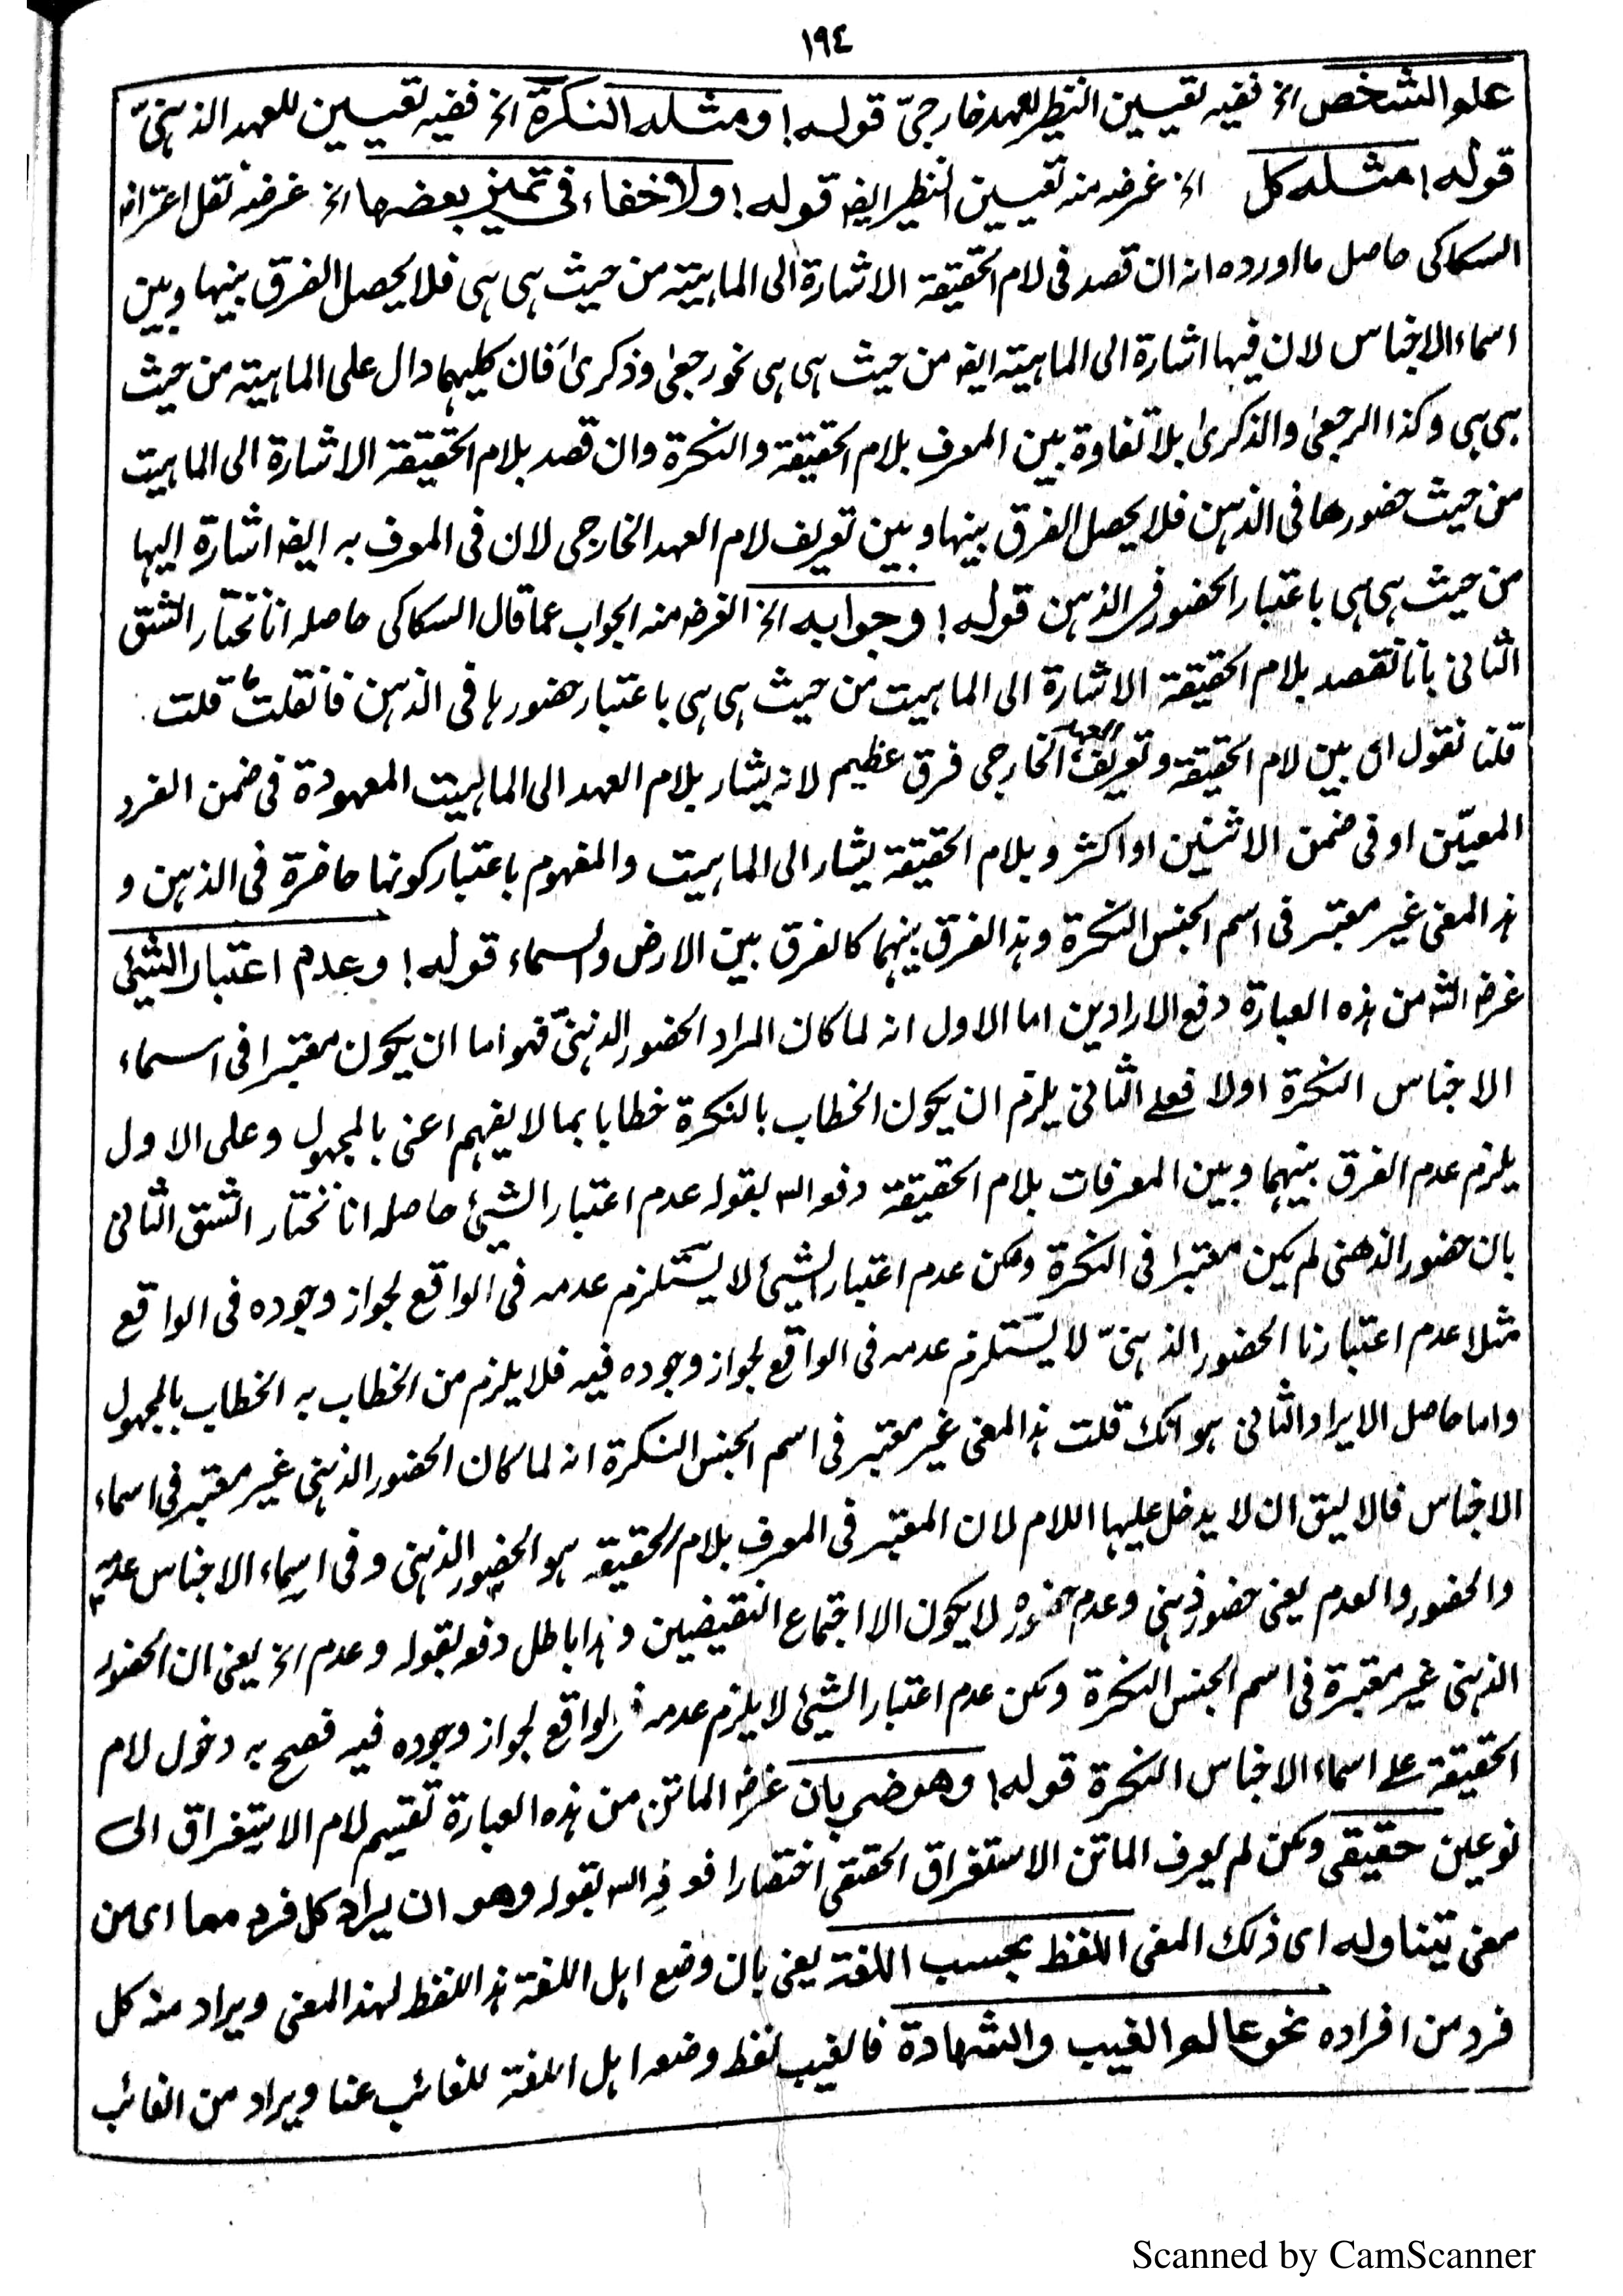 ١٩٤
علم الشخص الخ ففيه تعيين النظير للعهد خارجيّ قوله! ومثله النكرة الخ ففيه تعيين للعهد الذهنيّ
قوله! مثله كل الخ غرضه منه تعيين النظير ايضا قوله! ولا خفاء فى تميز بعضها الخ غرضه نقل اعتراض
السكاكى حاصل ما اورده انه ان قصد فى لام الحقيقة الاشارة الى الماهيته من حيث هى هى فلا يحصل الفرق بينها وبين
اسماء الاجناس لان فيها اشارة الى الماهيته ايضا من حيث هى هى نحو رجعىٰ وذكرىٰ فان كليهما دال على الماهيته من حيث
هى هى وكذا الرجعىٰ والذكرىٰ بلا تفاوة بين المعرف بلام الحقيقة والنكرة وان قصد بلام الحقيقة الاشارة الى الماهيت
من حيث حضورها فى الذهن فلا يحصل الفرق بينها وبين تعريف لام العهد الخارجى لان فى المعرف به ايضا اشارة اليها
من حيث هى هى باعتبار الحضور فى الذهن قوله! وجوابه الخ الغرض منه الجواب عما قال السكاكى حاصله انا نختار الشق
الثانى بانا نقصد بلام الحقيقة الاشارة الى الماهيت من حيث هى هى باعتبار حضورها فى الذهن فان قلت ما قلت
قلنا نقول اى بين لام الحقيقة وتعريف العهد الخارجى فرق عظيم لانه يشار بلام العهد الى الماهيت المعهودة فى ضمن الفرد
المعيّن او فى ضمن الاثنين او اكثر و بلام الحقيقة يشار الى الماهيت والمفهوم باعتبار كونها حاضرة فى الذهن و
هذا المعنى غير معتبر فى اسم الجنس النكرة وهذا الفرق بينهما كالفرق بين الارض والسماء قوله! وعدم اعتبار الشيئ
غرض الش من هذه العبارة دفع الارادين اما الاول انه لما كان المراد الحضور الذهنىّ فهو اما ان يكون معتبرا فى اسماء
الاجناس النكرة اولا فعلے الثانى يلزم ان يكون الخطاب بالنكرة خطابا بما لا يفهم اعنى بالمجهول وعلى الاول
يلزم عدم الفرق بينهما وبين المعرفات بلام الحقيقة دفع الش بقوله عدم اعتبار الشيئ حاصله انا نختار الشق الثانى
بان حضور الذهنى لم يكن معتبرا فى النكرة ولكن عدم اعتبار الشيئ لا يستلزم عدمه فى الواقع لجواز وجوده فى الواقع
مثلا عدم اعتبارنا الحضور الذهنىّ لا يستلزم عدمه فى الواقع لجواز وجوده فيه فلا يلزم من الخطاب به الخطاب بالمجهول
واما حاصل الايراد الثانى هو انك قلت هذا المعنى غير معتبر فى اسم الجنس النكرة انه لما كان الحضور الذهنى غير معتبر فى اسماء
الاجناس فالا ليق ان لا يدخل عليها اللام لان المعتبر فى المعرف بلام الحقيقة هو الحضور الذهنى وفى اسماء الاجناس عدمه
والحضور والعدم يعنى حضور ذهنى وعدم حضوره لا يكون الا اجتماع النقيضين وهذا باطل دفع بقوله وعدم الخ يعنى ان الحضور
الذهنى غير معتبرة فى اسم الجنس النكرة ولكن عدم اعتبار الشيئ لا يلزم عدمه فى الواقع لجواز وجوده فيه فصح به دخول لام
الحقيقة علے اسماء الاجناس النكرة قوله! وهو ضربان غرض الماتن من هذه العبارة تقسيم لام الاستغراق الى
نوعين حقيقى ولكن لم يعرف الماتن الاستغراق الحقيقى اختصارا فعرفه الش بقوله وهو ان يراد كل فرد مما اى من
معنى يتناوله اى ذلك المعنى اللفظ بحسب اللغة يعنى بان وضع اهل اللغة هذا اللفظ لهذا المعنى ويراد منه كل
فرد من افراده نحو عالم الغيب والشهادة فالغيب لفظ وضعه اهل اللغة للغائب عنا ويراد من الغائب
Scanned by CamScanner